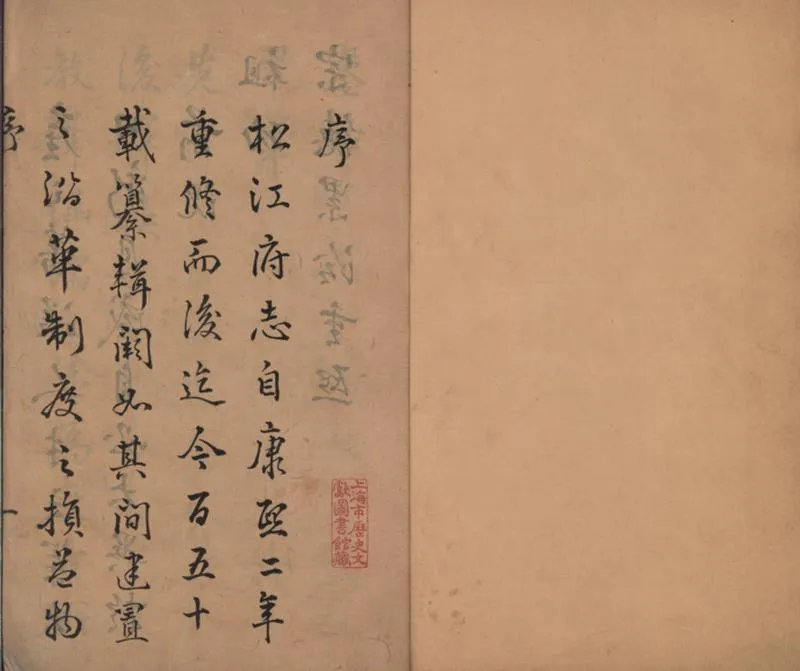 序
松江府志自康熙二年
重修而後迄今百五十
載纂輯闕如其間建置
之沿革制度之損益物
序
一
上海市歷史文
獻圖書館藏